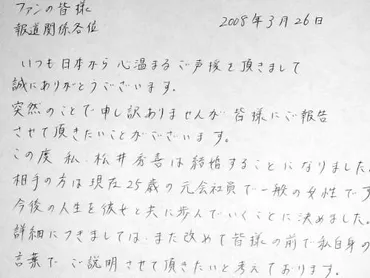 ファンの皆様
報道関係各位
2008年3月26日
いつも日本から心温まるご声援を頂きまして
誠にありがとうございます。
突然のことで申し訳ありませんが皆様にご報告
させて頂きたいことがございます。
この度 私、松井秀喜は結婚することになりました。
相手の方は現在25歳の元会社員で一般の女性です
今後の人生を彼女と共に歩んでいくことに決めました。
詳細につきましては、また改めて皆様の前で私自身の
言葉でご説明させて頂きたいと考えております。